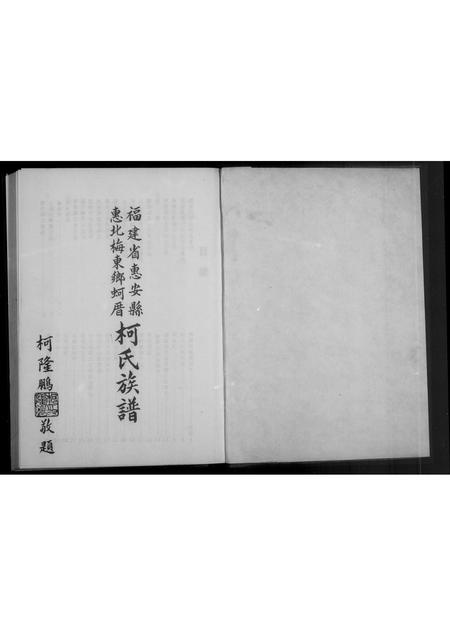 福建省惠安縣
惠北梅東鄉蚵厝
柯氏族譜
柯隆鵬敬題